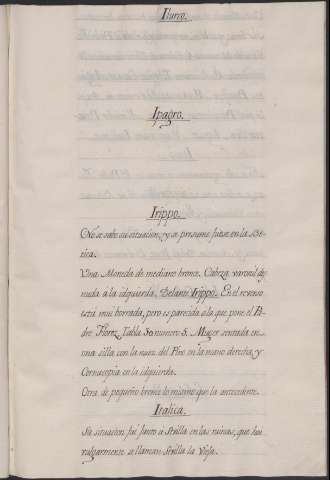 Ilurco.
Ipagro.
Irippo.
No se sabe su situacion, y se presume fuese en la Be-
tica.
Una Moneda de mediano bronce. Cabeza varonil des-
nuda á la izquierda. Delante Irippo. En el reverso
está mui borrada, pero es parecida á la que pone el Pa-
dre Florez Tabla 30 numero 5. Muger sentada en
una silla con la nuez del Pino en la mano derecha, y
Cornucopia en la izquierda.
Otra de pequeño bronce lo mismo que la antecedente.
Italica.
Su situacion fué junto a Sevilla en las ruinas, que hoi
vulgarmente se llaman Sevilla la Vieja.